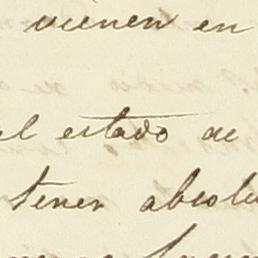 vienen en
el estado de
tener absolu